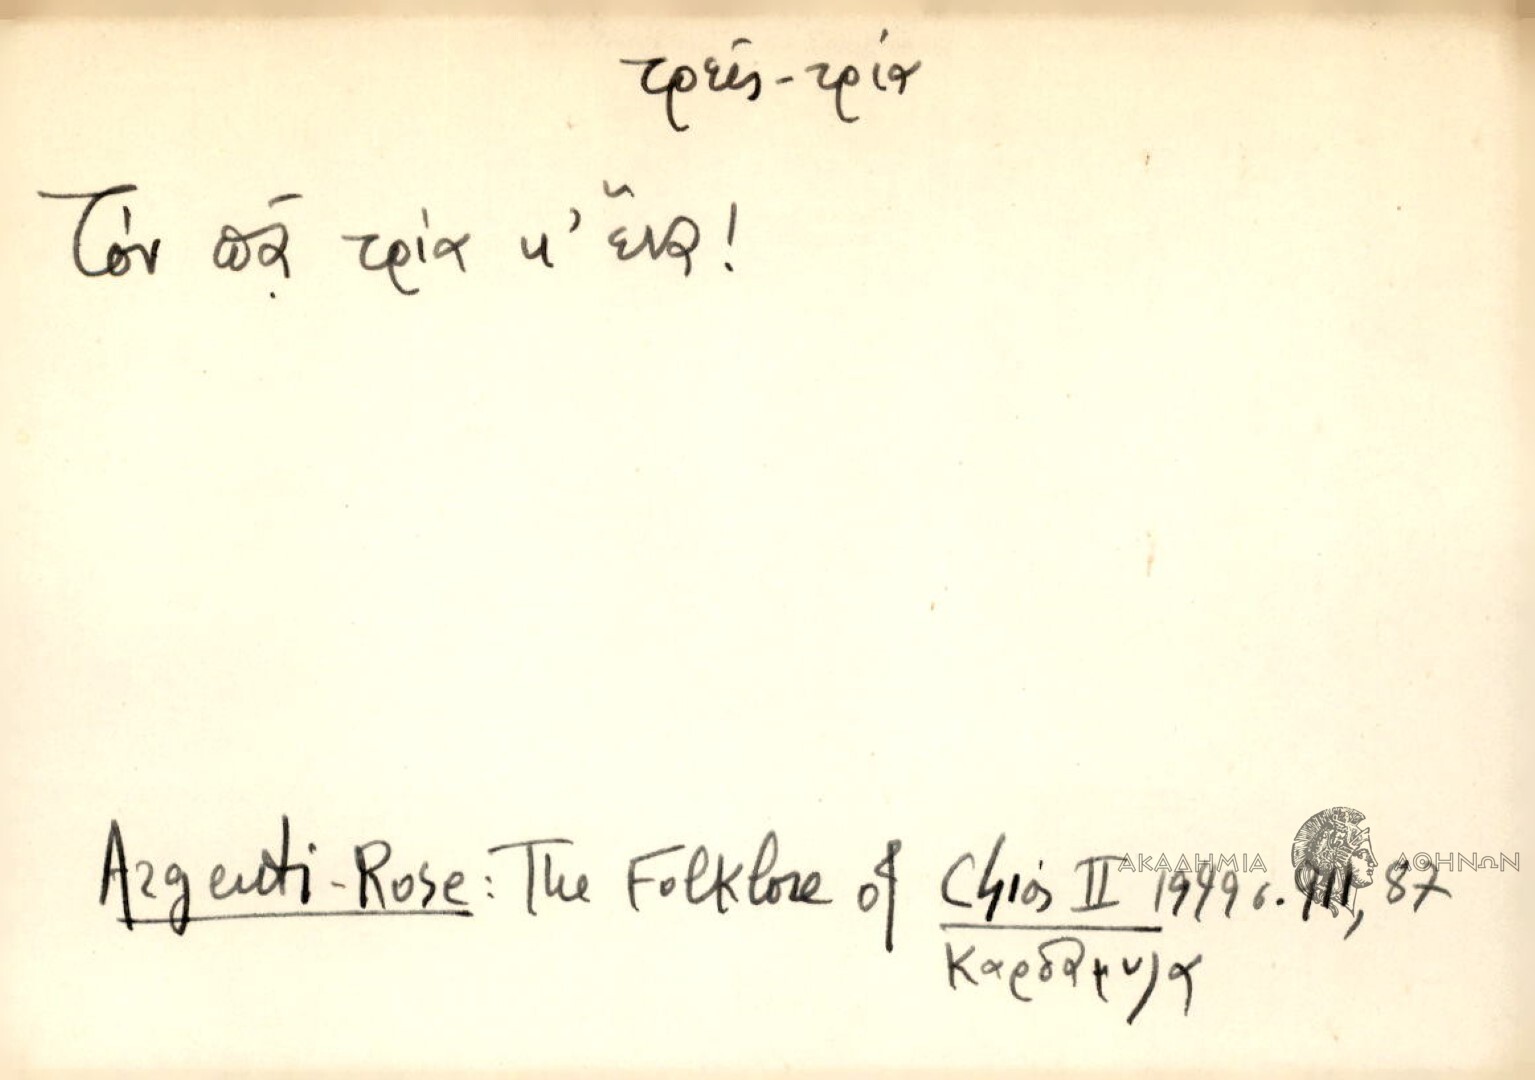 τρεῖς-τρία
Τόν πᾷ τρία κ' ἕνα!
Argenti-Rose: The Folklore of Chios II 1949 σ. 911, 87
Καρδάμυλα
ΑΚΑΔΗΜΙΑ ΑΘΗΝΩΝ